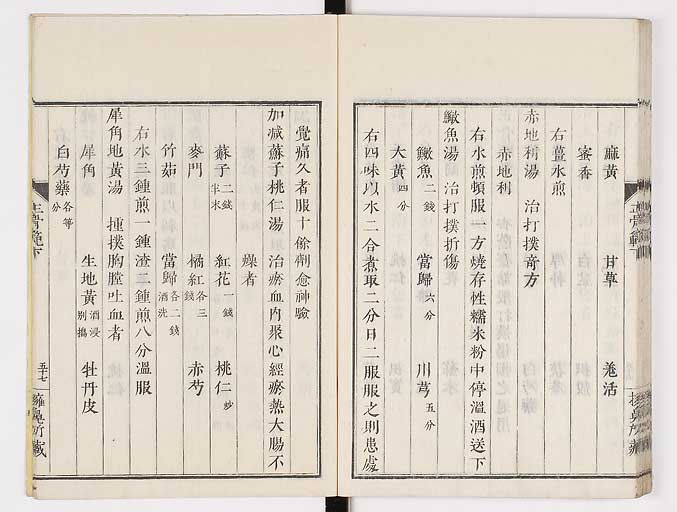 麻黃 甘草 羗活
蜜香
右薑水煎
赤地利湯 治打撲竒方
赤地利
右水煎頓服一方燒存性糯米粉中停溫酒送下
鱖魚湯 治打撲折傷
鱖魚二錢 當歸六分 川芎五分
大黃四分
右四味以水二合煮取二分日二服服之則患處
覺痛久者服十餘劑愈神驗
加减蘇子桃仁湯 治瘀血內聚心經瘀熱大腸不
燥者
蘇子二錢半末 紅花一錢 桃仁炒
麥門 橘紅各三錢 赤芍
竹茹 當歸各二錢酒洗
右水三鍾煎一鍾渣二鍾煎八分溫服
犀角地黃湯 捶撲胸膛吐血者
犀角 生地黃酒浸別搗 牡丹皮
白芍藥各等分
正骨範下
五十七